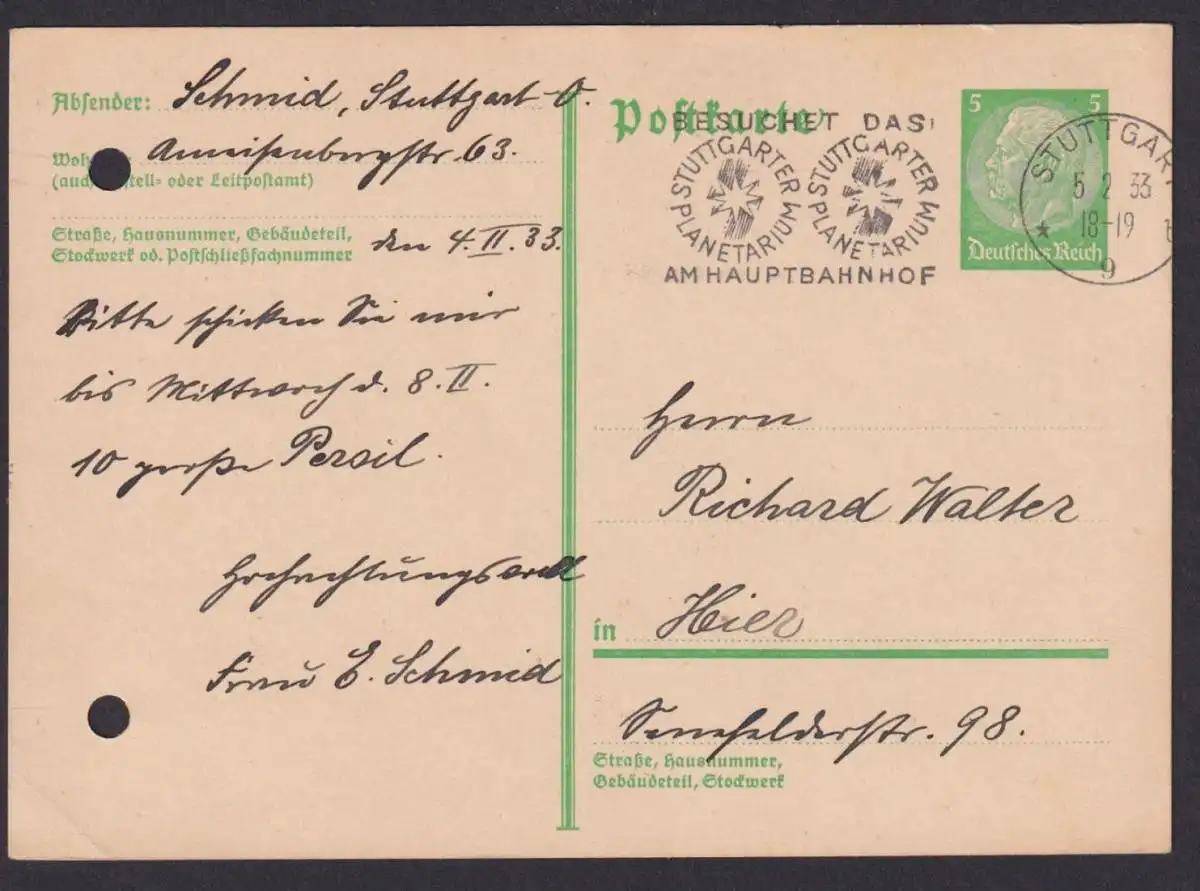 Absender: Schmid, Stuttgart-O.
Ameisenbergstr. 63.
(auch Zustell- oder Leitpostamt)
Straße, Hausnummer, Gebäudeteil,
Stockwerk od. Postschließfachnummer
den 4.II.33.
Bitte schicken Sie mir
bis Mittwoch d. 8.II.
10 große Persil.
Hochachtungsvoll
Frau E. Schmid
Postkarte
BESUCHET DAS
STUTTGARTER PLANETARIUM STUTTGARTER PLANETARIUM
AM HAUPTBAHNHOF
5 5
Deutsches Reich
STUTTGART
5 2 33
18-19
9
Herrn
Richard Walter
in Hier
Senefelderstr. 98.
Straße, Hausnummer,
Gebäudeteil, Stockwerk